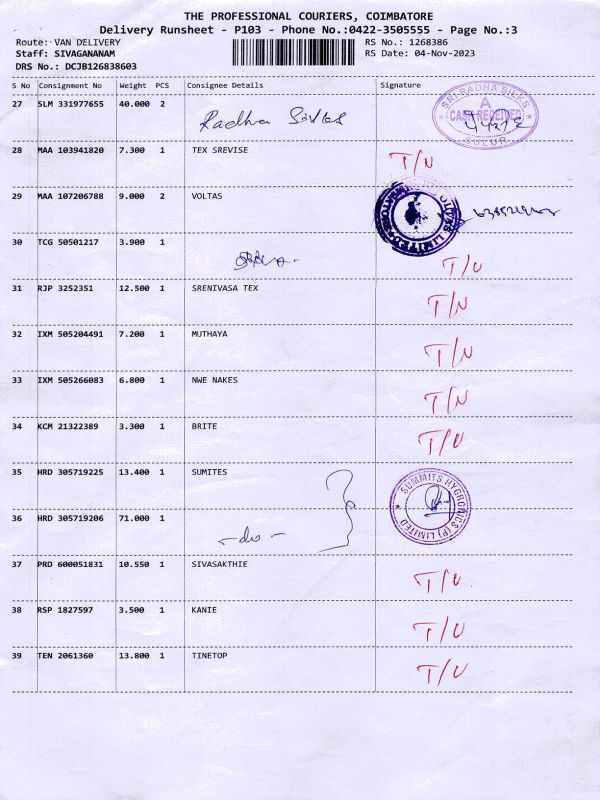 THE PROFESSIONAL COURIERS, COIMBATORE
Delivery Runsheet - P103 - Phone No.:0422-3505555 - Page No.:3
Route: VAN DELIVERY RS No.: 1268386
Staff: SIVAGANANAM RS Date: 04-Nov-2023
DRS No.: DCJB126838603
S No Consignment No Weight PCS Consignee Details Signature
27 SLM 331977655 40.000 2 Radha SRI RADHA SILKS A CASH RECEIVED SULUR
28 MAA 103941820 7.300 1 TEX SREVISE T/N
29 MAA 107206788 9.000 2 VOLTAS LIMITED
30 TCG 50501217 3.900 1 T/U
31 RJP 3252351 12.500 1 SRENIVASA TEX T/N
32 IXM 505204491 7.200 1 MUTHAYA T/N
33 IXM 505266083 6.800 1 NWE NAKES T/N
34 KCM 21322389 3.300 1 BRITE T/U
35 HRD 305719225 13.400 1 SUMITES SUMMITS HYGRONICS (P) LIMITED
36 HRD 305719206 71.000 1 -do-
37 PRD 600051831 10.550 1 SIVASAKTHIE T/U
38 RSP 1827597 3.500 1 KANIE T/U
39 TEN 2061360 13.800 1 TINETOP T/U